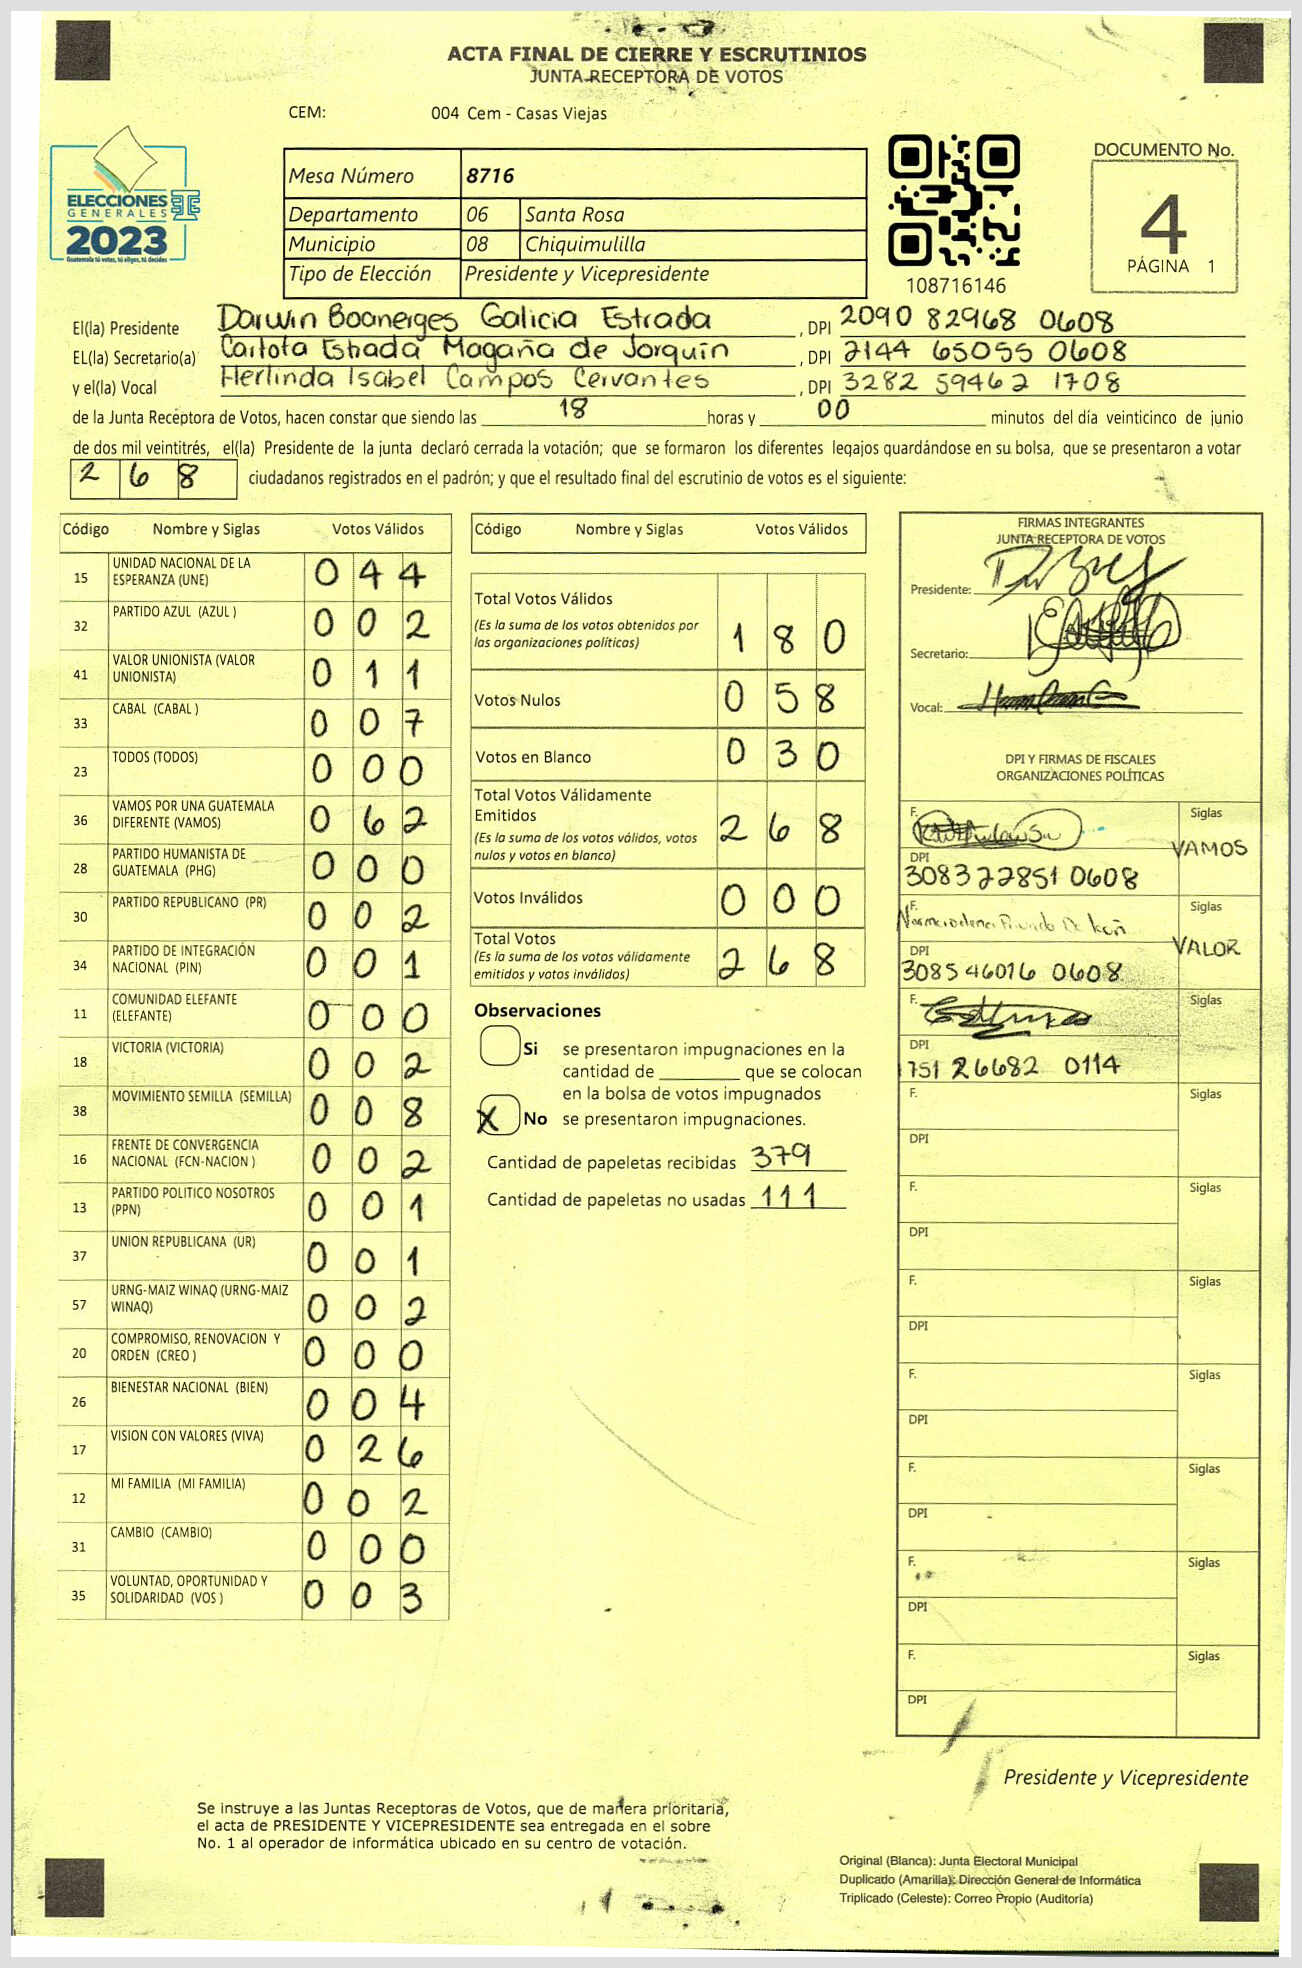 ACTA FINAL DE CIERRE Y ESCRUTINIOS
JUNTA RECEPTORA DE VOTOS
CEM: 004 Cem - Casas Viejas
ELECCIONES
GENERALES
2023
Guatemala tú votas, tú eliges, tú decides
Mesa Número 8716
Departamento 06 Santa Rosa
Municipio 08 Chiquimulilla
Tipo de Elección Presidente y Vicepresidente
108716146
DOCUMENTO No.
4
PÁGINA 1
El(la) Presidente Darwin Boanerges Galicia Estrada, DPI 2090 82968 0608
EL(la) Secretario(a) Carlota Estrada Magaña de Jorquín, DPI 2144 65055 0608
y el(la) Vocal Herlinda Isabel Campos Cervantes, DPI 3282 59462 1708
de la Junta Receptora de Votos, hacen constar que siendo las 18 horas y 00 minutos del día veinticinco de junio
de dos mil veintitrés, el(la) Presidente de la junta declaró cerrada la votación; que se formaron los diferentes legajos guardándose en su bolsa, que se presentaron a votar
268 ciudadanos registrados en el padrón; y que el resultado final del escrutinio de votos es el siguiente:
Código Nombre y Siglas Votos Válidos
15 UNIDAD NACIONAL DE LA ESPERANZA (UNE) 0 4 4
32 PARTIDO AZUL (AZUL ) 0 0 2
41 VALOR UNIONISTA (VALOR UNIONISTA) 0 1 1
33 CABAL (CABAL ) 0 0 7
23 TODOS (TODOS) 0 0 0
36 VAMOS POR UNA GUATEMALA DIFERENTE (VAMOS) 0 6 2
28 PARTIDO HUMANISTA DE GUATEMALA (PHG) 0 0 0
30 PARTIDO REPUBLICANO (PR) 0 0 2
34 PARTIDO DE INTEGRACIÓN NACIONAL (PIN) 0 0 1
11 COMUNIDAD ELEFANTE (ELEFANTE) 0 0 0
18 VICTORIA (VICTORIA) 0 0 2
38 MOVIMIENTO SEMILLA (SEMILLA) 0 0 8
16 FRENTE DE CONVERGENCIA NACIONAL (FCN-NACION ) 0 0 2
13 PARTIDO POLITICO NOSOTROS (PPN) 0 0 1
37 UNION REPUBLICANA (UR) 0 0 1
57 URNG-MAIZ WINAQ (URNG-MAIZ WINAQ) 0 0 2
20 COMPROMISO, RENOVACION Y ORDEN (CREO ) 0 0 0
26 BIENESTAR NACIONAL (BIEN) 0 0 4
17 VISION CON VALORES (VIVA) 0 2 6
12 MI FAMILIA (MI FAMILIA) 0 0 2
31 CAMBIO (CAMBIO) 0 0 0
35 VOLUNTAD, OPORTUNIDAD Y SOLIDARIDAD (VOS ) 0 0 3
Código Nombre y Siglas Votos Válidos
Total Votos Válidos
(Es la suma de los votos obtenidos por
las organizaciones políticas) 1 8 0
Votos Nulos 0 5 8
Votos en Blanco 0 3 0
Total Votos Válidamente
Emitidos
(Es la suma de los votos válidos, votos
nulos y votos en blanco) 2 6 8
Votos Inválidos 0 0 0
Total Votos
(Es la suma de los votos válidamente
emitidos y votos inválidos) 2 6 8
Observaciones
Si se presentaron impugnaciones en la
cantidad de ________ que se colocan
en la bolsa de votos impugnados
X No se presentaron impugnaciones.
Cantidad de papeletas recibidas 379
Cantidad de papeletas no usadas 111
FIRMAS INTEGRANTES
JUNTA RECEPTORA DE VOTOS
Presidente:
Secretario:
Vocal:
DPI Y FIRMAS DE FISCALES
ORGANIZACIONES POLÍTICAS
F. Siglas
VAMOS
DPI
3083 22851 0608
F. Siglas
VALOR
DPI
3085 46016 0608
F. Siglas
DPI
1751 26682 0114
F. Siglas
DPI
F. Siglas
DPI
F. Siglas
DPI
F. Siglas
DPI
F. Siglas
DPI
F. Siglas
DPI
F. Siglas
DPI
Presidente y Vicepresidente
Se instruye a las Juntas Receptoras de Votos, que de manera prioritaria,
el acta de PRESIDENTE Y VICEPRESIDENTE sea entregada en el sobre
No. 1 al operador de informática ubicado en su centro de votación.
Original (Blanca): Junta Electoral Municipal
Duplicado (Amarilla): Dirección General de Informática
Triplicado (Celeste): Correo Propio (Auditoría)